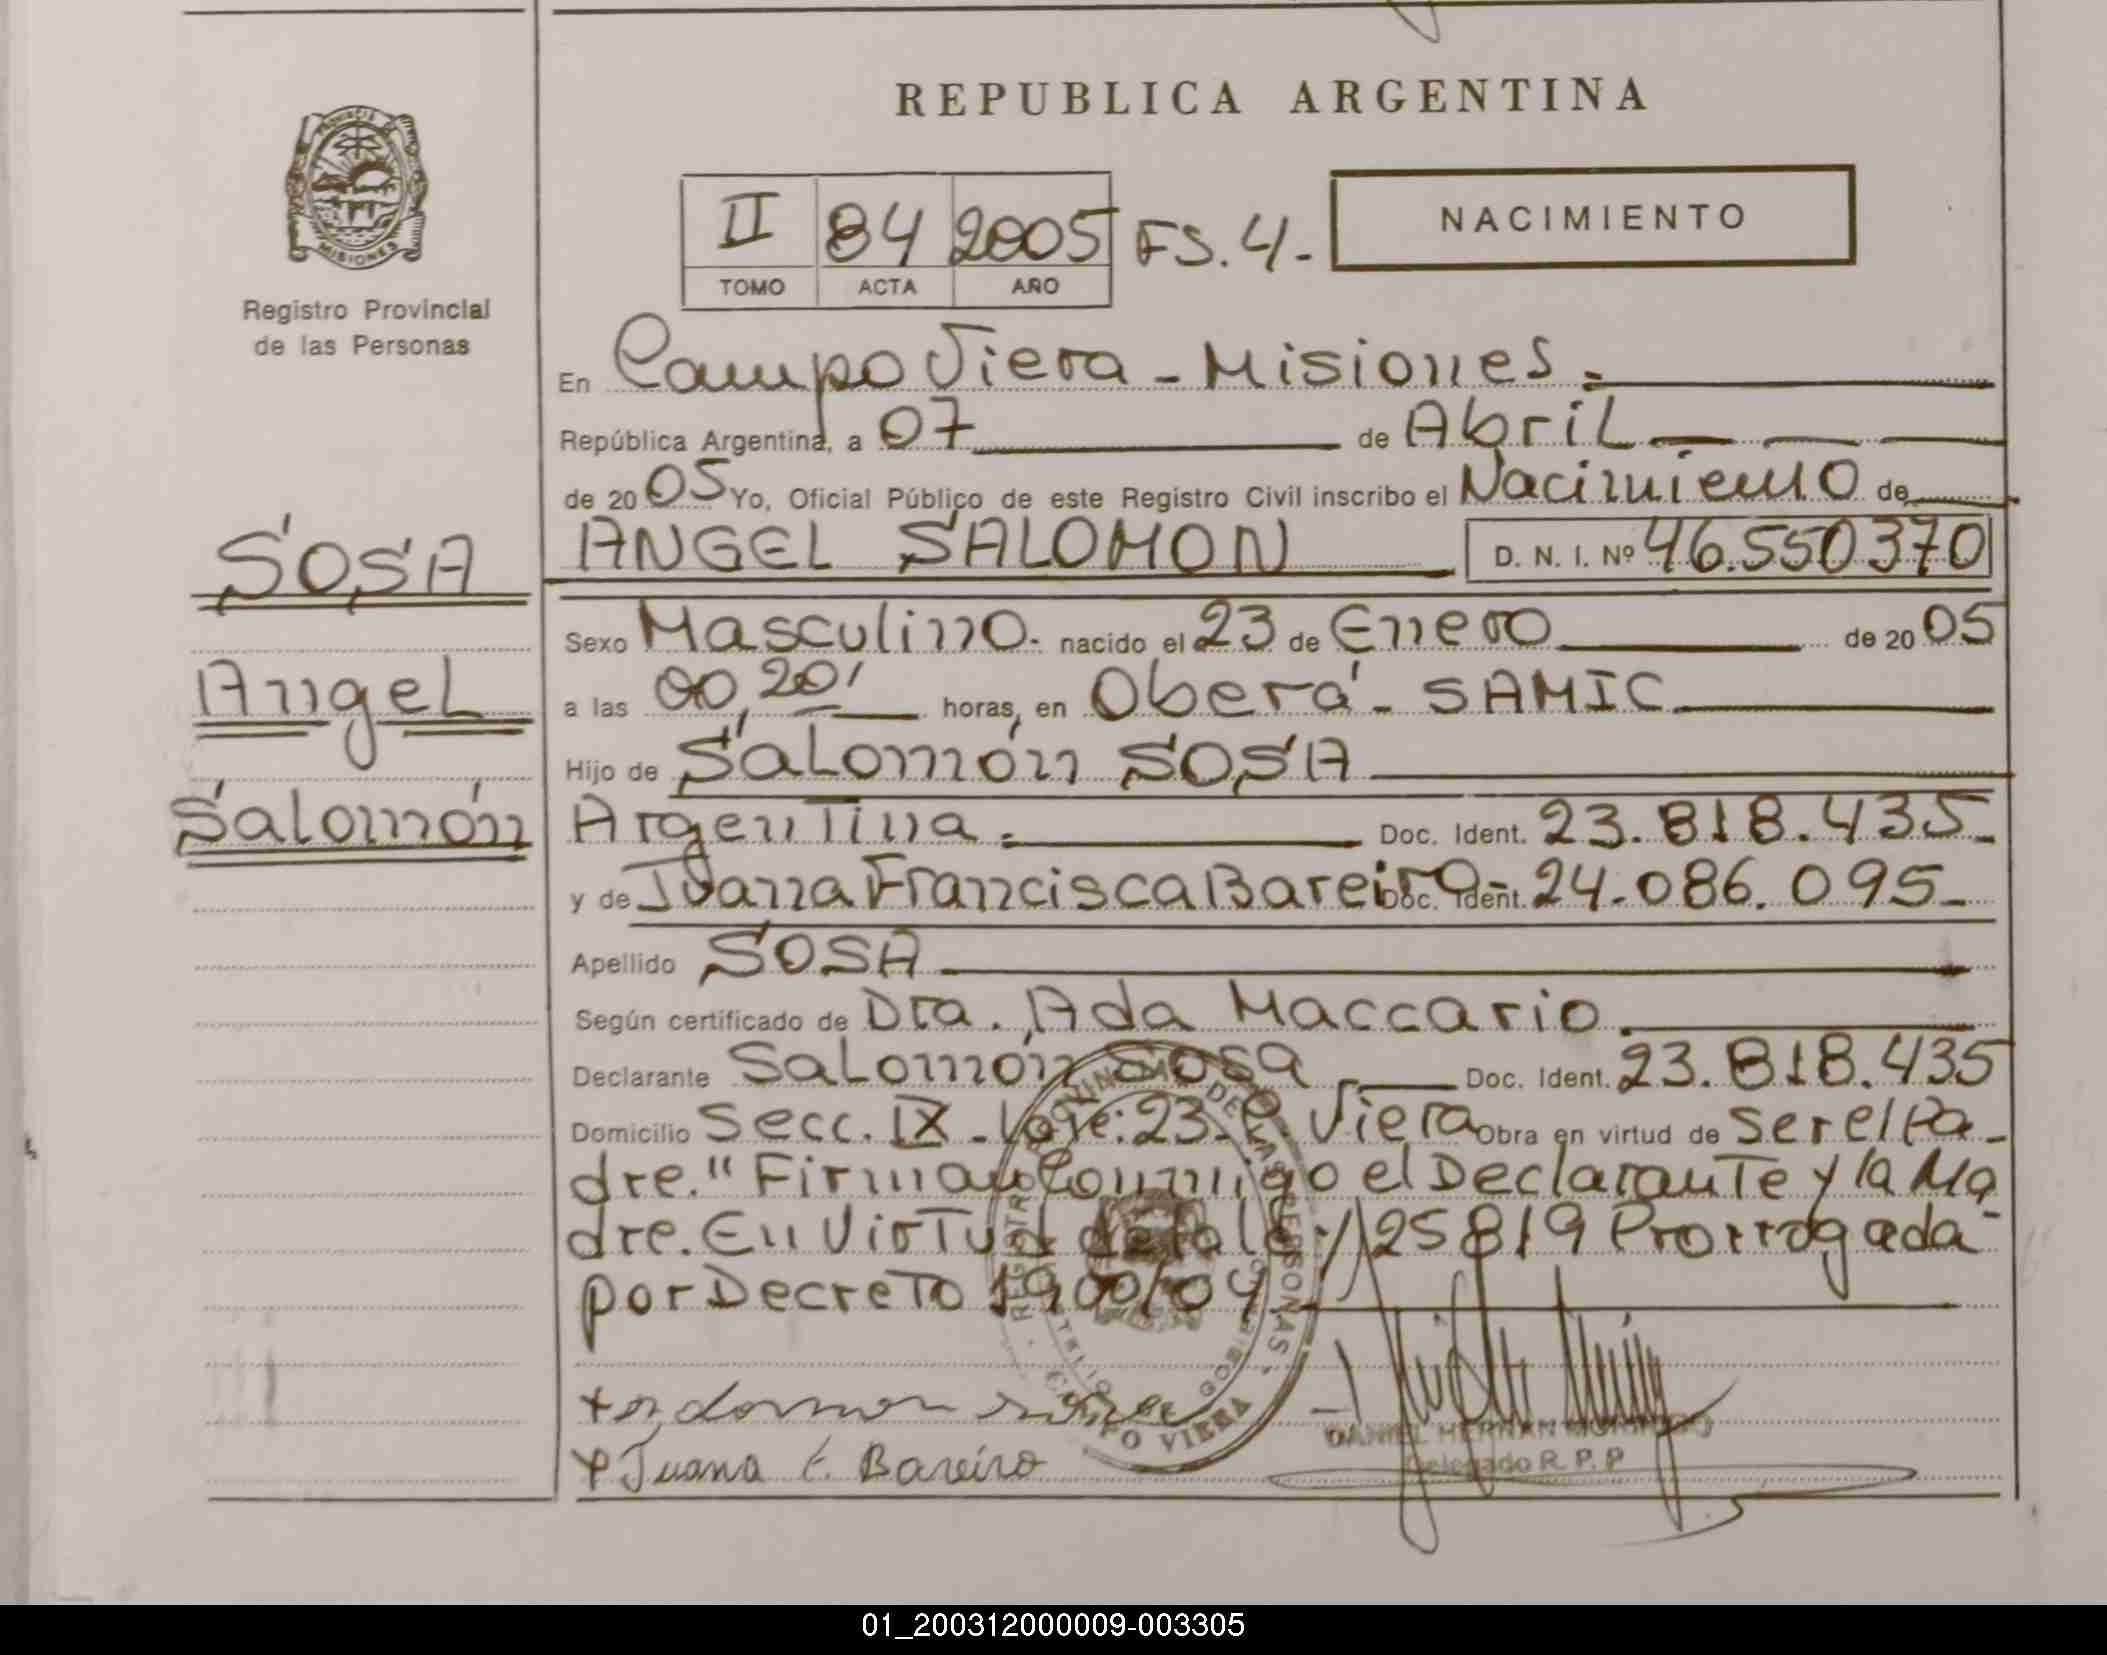 REPUBLICA ARGENTINA
PROVINCIA DE
MISIONES
Registro Provincial
de las Personas
II 84 2005 FS. 4.-
TOMO ACTA AÑO
NACIMIENTO
En Campo Viera - Misiones.-
República Argentina, a 07 de Abril
de 2005 Yo, Oficial Público de este Registro Civil inscribo el Nacimiento de
SOSA
ANGEL SALOMON D. N. I. Nº 46.550370
Sexo Masculino.- nacido el 23 de Enero de 2005
Angel
a las 00,20' horas, en Oberá - SAMIC
Hijo de Salomón SOSA
Salomón
Argentina.- Doc. Ident. 23.818.435-
y de Juana Francisca Bareiro- Doc. Ident. 24.086.095-
Apellido SOSA
Según certificado de Dra. Ada Maccario.
Declarante Salomón Sosa Doc. Ident. 23.818.435
Domicilio Secc. IX - Lote: 23- C. Viera Obra en virtud de ser el Pa-
dre." Firman Conmigo el Declarante y la Ma
dre. En Virtud de la ley 25819 Prorrogada-
por Decreto 1900/04
REGISTRO PROVINCIAL DE LAS PERSONAS
CAMPO VIERA
Juana F. Bareiro
DANIEL HERNAN
Delegado R. P. P
01_200312000009-003305